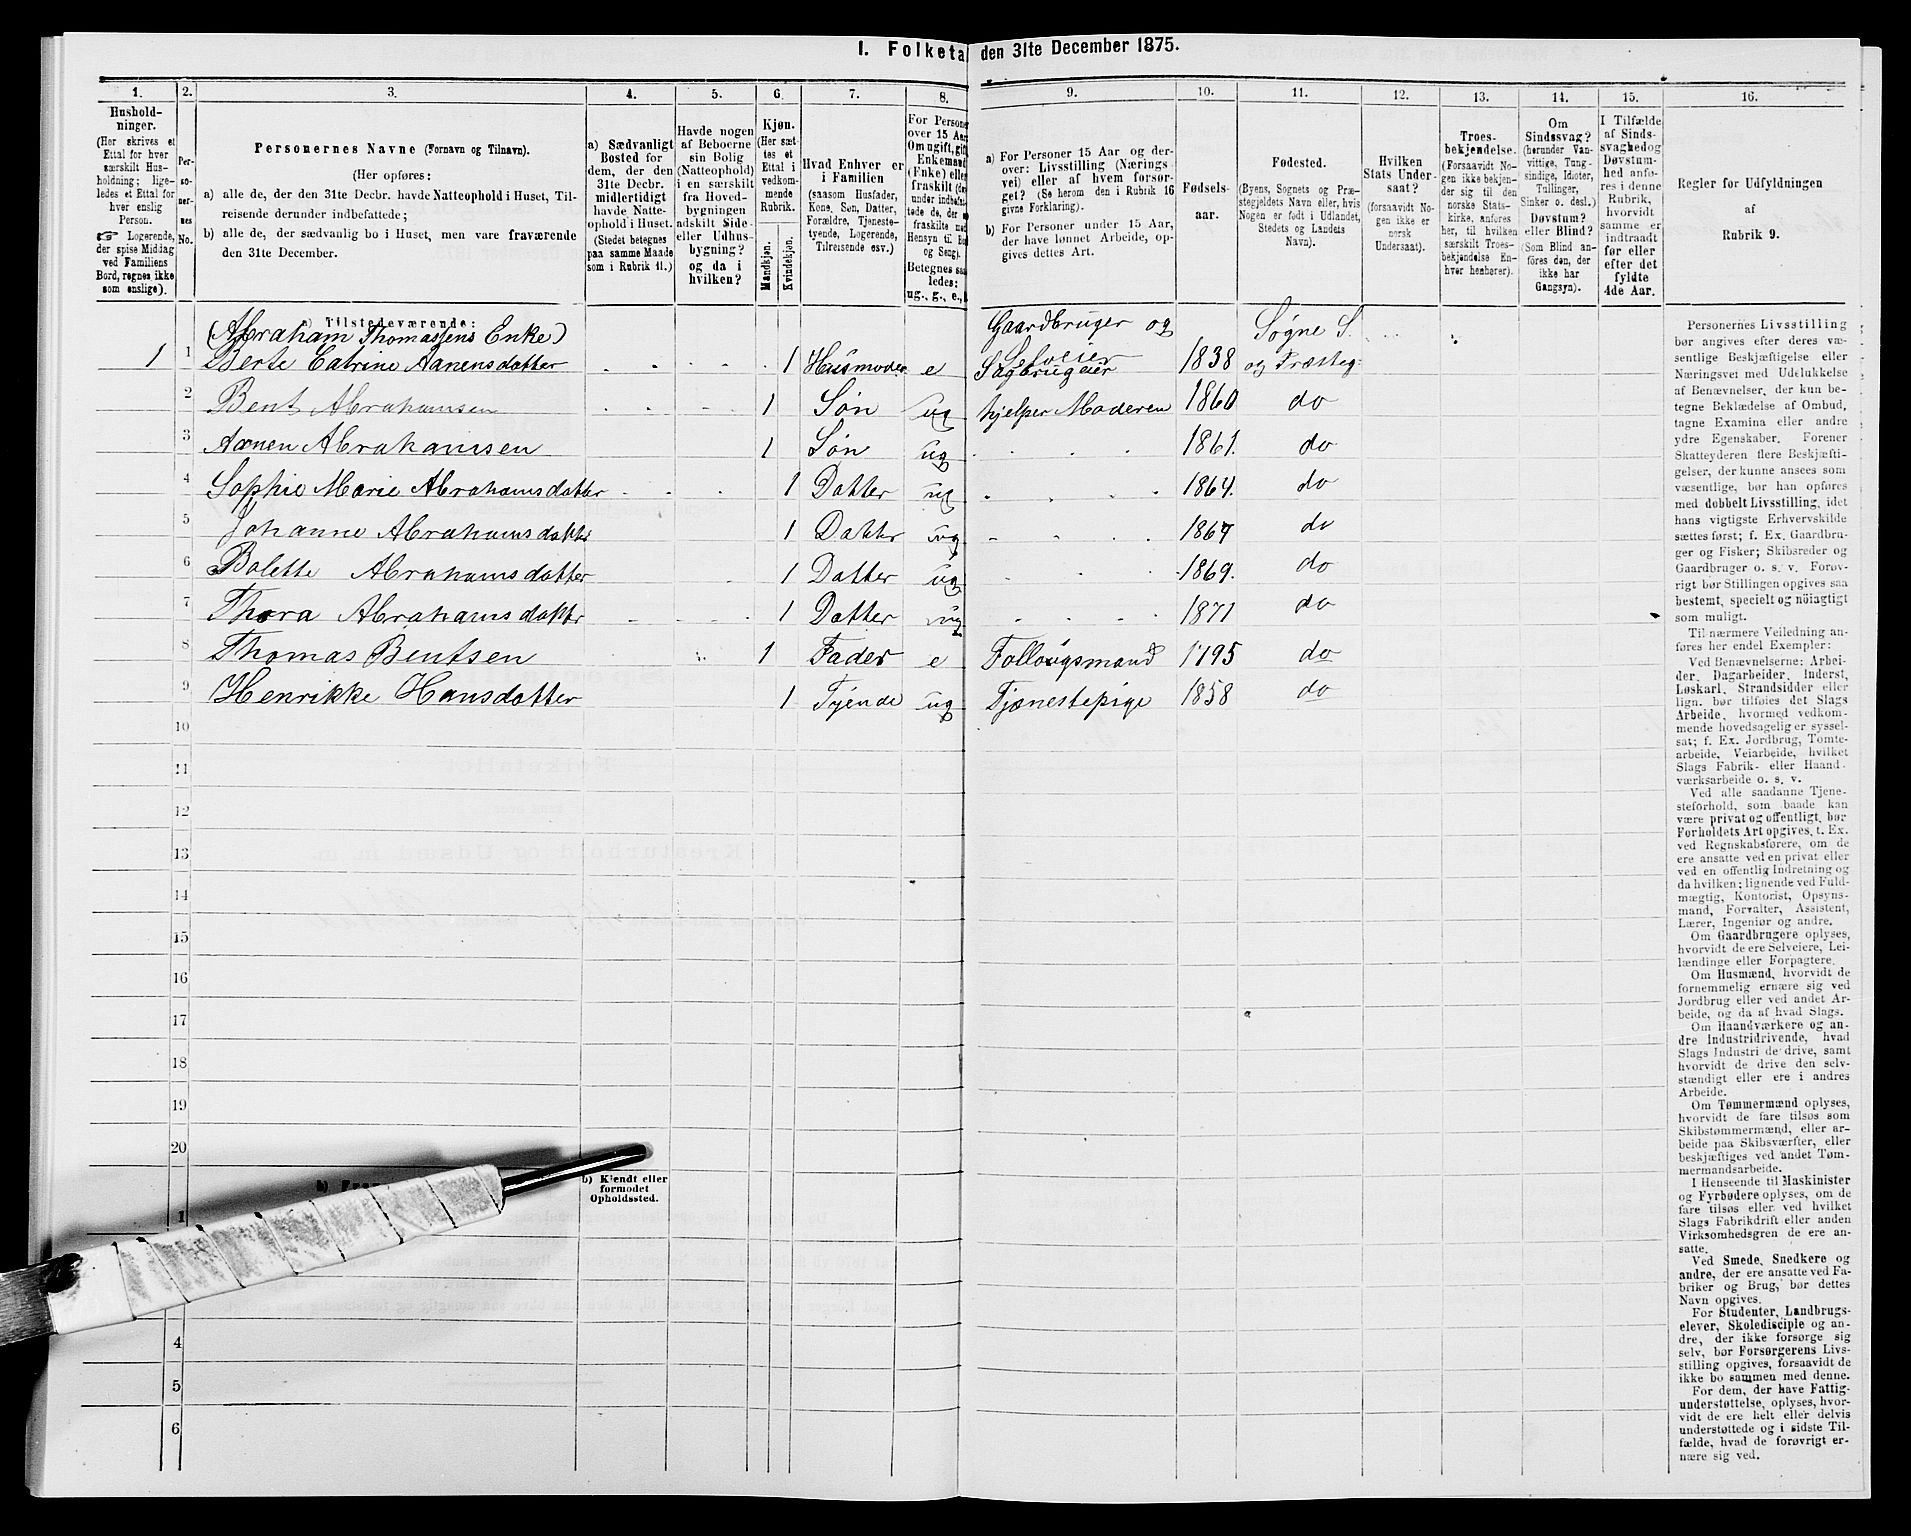 I. Folketa den 31te December 1875.
1. 2. 3. 4. 5. 6. 7. 8. 9. 10. 11. 12. 13. 14. 15. 16.
Hushold-
ninger.
(Her skrives et
Ettal for hver
særskilt Hus-
holdning; lige-
ledes et Ettal for
hver enslig
Person.
☞ Logerende,
der spise Middag
ved Familiens
Bord, regnes ikke
som enslige).
Per-
so-
ner-
nes
No.
Personernes Navne (Fornavn og Tilnavn).
(Her opføres:
a) alle de, der den 31te Decbr. havde Natteophold i Huset, Til-
reisende derunder indbefattede;
b) alle de, der sædvanlig bo i Huset, men vare fraværende
den 31te December.
a) Sædvanligt
Bosted for
dem, der den
31te Decbr.
midlertidigt
havde Natte-
ophold i Huset.
(Stedet betegnes
paa samme Maade
som i Rubrik 11.)
Havde nogen
af Beboerne
sin Bolig
(Natteophold)
i en særskilt
fra Hoved-
bygningen
adskilt Side-
eller Udhus-
bygning?
og da i
hvilken?
Kjøn.
(Her sæt-
tes et
Ettal i
vedkom-
mende
Rubrik.
Mandkjøn.
Kvindekjøn.
Hvad Enhver er
i Familien
(saasom Husfader,
Kone, Søn, Datter,
Forældre, Tjeneste-
tyende, Logerende,
Tilreisende osv.)
For Persone
over 15 Aar
Om ugift, gift
Enkemand
(Enke) elle
fraskilt (der
under indbefat-
tede de, der ere
fraskilte med
Hensyn til Bo
og Seng).
Betegnes saa
ledes:
ug., g., e.,
a) For Personer 15 Aar og der-
over: Livsstilling (Nærings-
vei) eller af hvem forsør-
get? (Se herom den i Rubrik 16
givne Forklaring).
b) For Personer under 15 Aar,
der have lønnet Arbeide, op-
gives dettes Art.
Fødsels-
aar.
Fødested.
(Byens, Sognets og Præ-
stegjeldets Navn eller, hvis
Nogen er født i Udlandet,
Stedets og Landets
Navn).
Hvilken
Stats Under-
saat?
(forsaavidt No-
gen ikke er
norsk
Undersaat).
Troes-
bekjendelse.
(Forsaavidt No-
gen ikke bekjen-
der sig til den
norske Stats-
kirke, anføres
her, til hvilken
særskilt Troes-
bekjendelse En-
hver henhører).
Om
Sindssvag?
(herunder Van-
vittige, Tung-
sindige, Idioter,
Tullinger,
Sinker o. desl.)
Døvstum?
eller Blind?
(Som Blind an-
føres den, der
ikke har
Gangsyn).
I Tilfælde
af Sinds-
svaghed og
Døvstum-
hed anfø-
res i denne
Rubrik,
hvorvidt
samme er
indtraadt
før eller
efter det
fyldte
4de Aar.
Regler for Udfyldningen
af
Rubrik 9.
a) Tilstedeværende:
(Abraham Thomassens Enke) Gaardbruger og Søgne S.
1 1 Berte Catrine Aanensdatter 1 Husmoder e Selveier Sagbrugeier 1838 og Præsteg.
2 Bent Abrahamsen 1 Søn ug hjelper Moderen 1860 do
3 Aanen Abrahamsen 1 Søn ug 1861. do
4 Sophie Marie Abrahamsdatter 1 Datter ug 1864. do
5 Johanne Abrahamsdatter 1 Datter ug 1867 do
6 Bolette Abrahamsdatter 1 Datter ug 1869. do
7 Thora Abrahamsdatter 1 Datter ug 1871 do
8 Thomas Bentsen 1 Fader e Follougsmand 1795 do
9 Henrikke Hansdatter 1 Tyende ug Tjenestepige 1858 do
10
11
12
13
14
15
16
17
18
19
20
b) Kjendt eller
formodet
Opholdssted.
1
4
5
6
Personernes Livsstilling
bør angives efter deres væ-
sentlige Beskjæftigelse eller
Næringsvei med Udelukkelse
af Benævnelser, der kun be-
tegne Beklædelse af Ombud,
tagne Examina eller andre
ydre Egenskaber. Forener
Skatteyderen flere Beskjæfti-
gelser, der kunne ansees som
væsentlige, bør han opføres
med dobbelt Livsstilling, idet
hans vigtigste Erhvervskilde
sættes først; f. Ex. Gaardbru-
ger og Fisker; Skibsreder og
Gaardbruger o. s. v. Forøv-
rigt bør Stillingen opgives saa
bestemt, specielt og nøiagtigt
som muligt.
Til nærmere Veiledning an-
føres her endel Exempler:
Ved Benævnelserne: Arbei-
der, Dagarbeider, Inderst,
Løskarl, Strandsidder eller
lign. bør tilføies det Slags
Arbeide, hvormed vedkom-
mende hovedsagelig er syssel-
sat; f. Ex. Jordbrug, Tømte-
arbeide, Veiarbeide, hvilket
Slags Fabrik- eller Haand-
værksarbeide o. s. v.
Ved alle saadanne Tjene-
steforhold, som baade kan
være privat og offentligt, bør
Forholdets Art opgives, t. Ex.
ved Regnskabsførere, om de
ere ansatte ved en privat eller
ved en offentlig Indretning og
da hvilken; lignende ved Fuld-
mægtig, Kontorist, Opsyns-
mand, Forvalter, Assistent,
Lærer, Ingeniør og andre.
Om Gaardbrugere oplyses,
hvorvidt de ere Selveiere, Lei-
lændinge eller Forpagtere.
Om Husmænd, hvorvidt de
fornemmelig ernære sig ved
Jordbrug eller ved andet Ar-
beide, og da af hvad Slags.
Om Haandværkere og an-
dre Industridrivende, hvad
Slags Industri de drive, samt
hvorvidt de drive den selv-
stændigt eller ere i andres
Arbeide.
Om Tømmermænd oplyses,
hvorvidt de fare tilsøs som
Skibstømmermænd, eller ar-
beide paa Skibsværfter, eller
beskjæftiges ved andet Tøm-
mermandsarbeide.
I Henseende til Maskinister
og Fyrbødere oplyses, om de
fare tilsøs eller ved hvilket
Slags Fabrikdrift eller anden
Virksomhedsgren de ere an-
satte.
Ved Smede, Snedkere og
andre, der ere ansatte ved Fa-
briker og Brug, bør dettes
Navn opgives.
For Studenter, Landbrugs-
elever, Skoledisciple og an-
dre, der ikke forsørge sig
selv, bør Forsørgerens Livs-
stilling opgives, forsaavidt de
ikke bo sammen med denne.
For dem, der have Fattig-
understøttelse, oplyses, hvor-
vidt de ere helt eller delvis
understøttede og i sidste Til-
fælde, hvad de forøvrigt er-
nære sig ved.